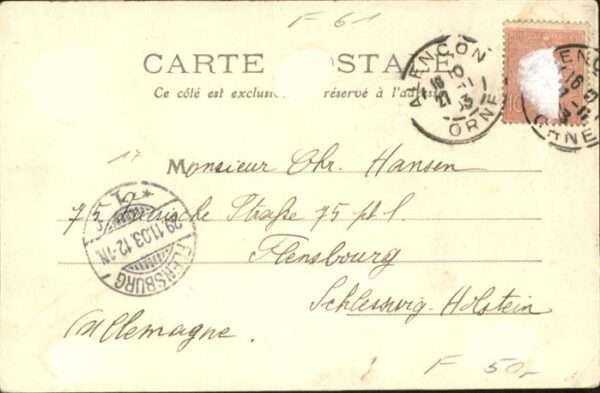 F 61
CARTE POSTALE
Ce côté est exclusivement réservé à l'adresse
ALENÇON
ORNE
10
17
Monsieur Chr. Hansen
75 Straße 75 pt l.
Flensbourg
Schleswig-Holstein
Allemagne.
FLENSBURG
29.11.03.12-1N
F 50,-